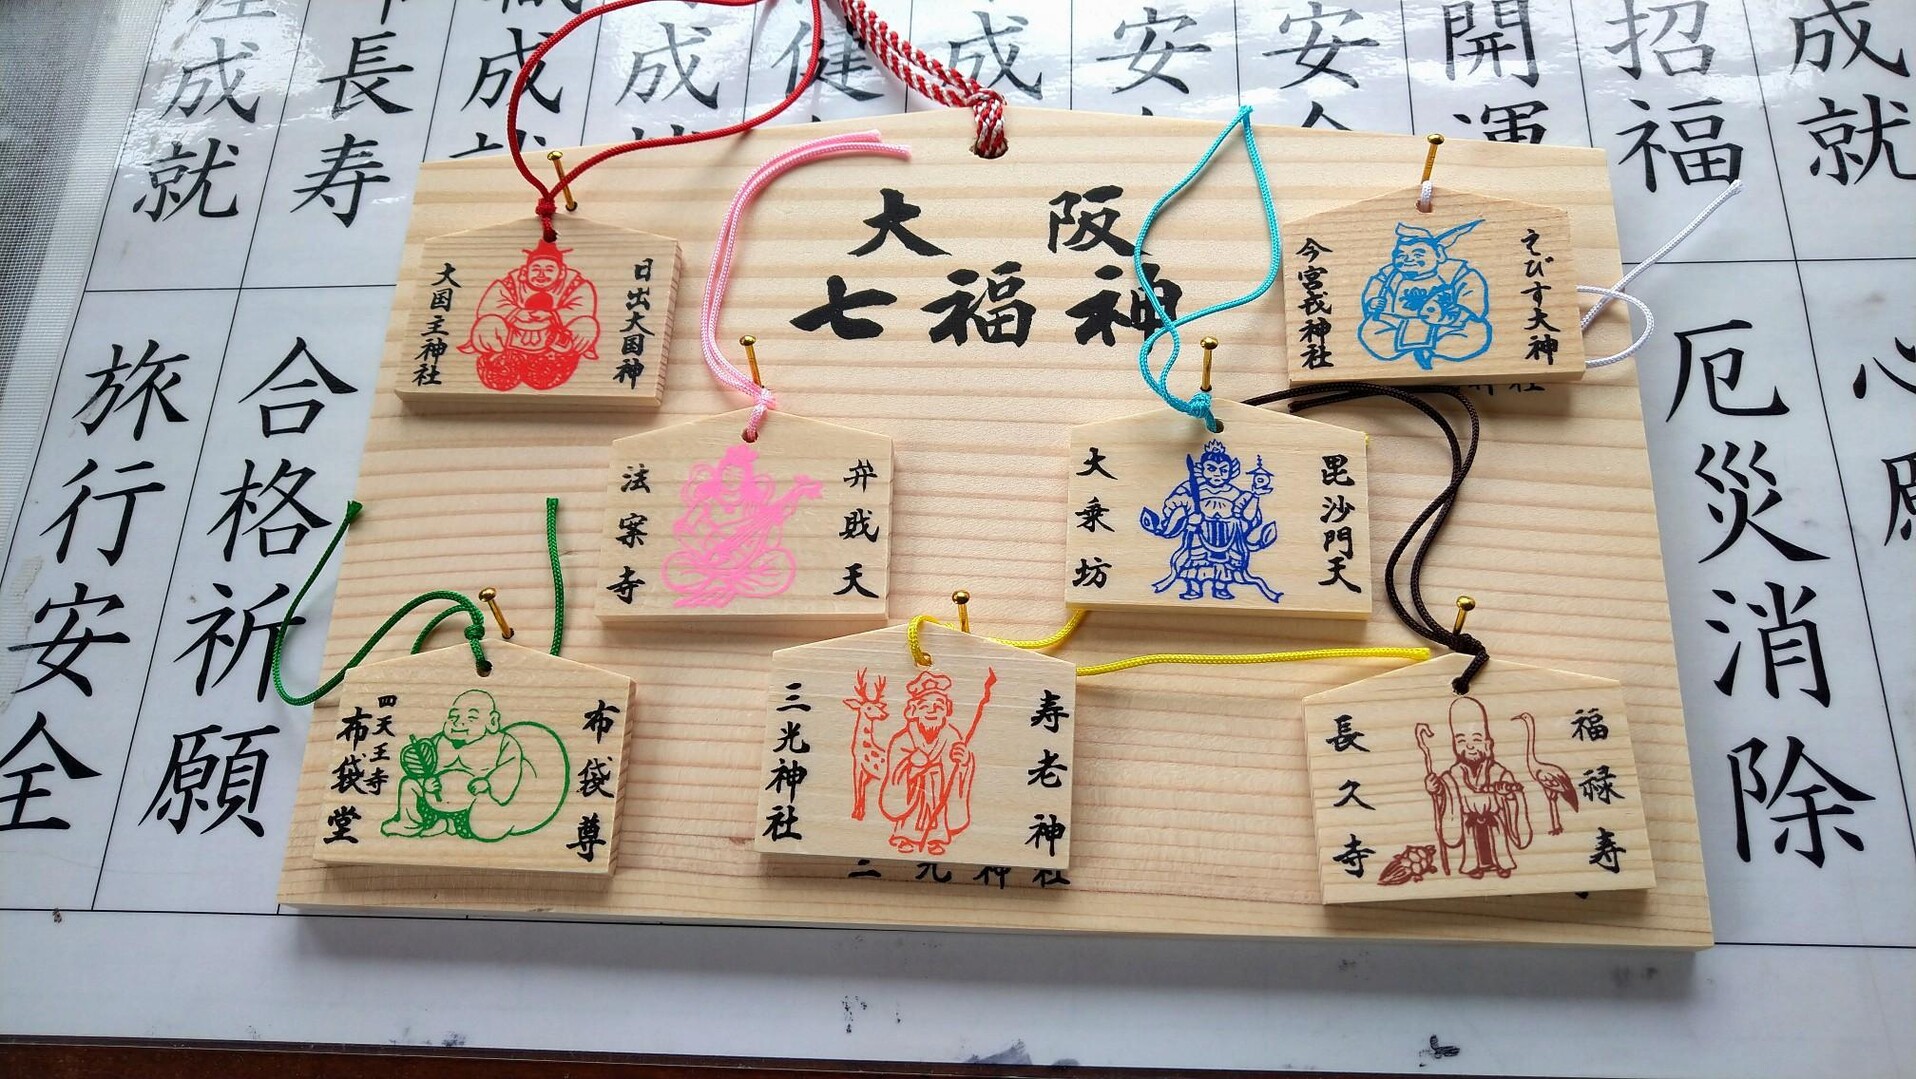 大阪
七福神
日出大国神
大国主神社
えびす大神
今宮戎神社
弁財天
法案寺
毘沙門天
大乗坊
布袋尊
四天王寺
布袋堂
寿老神
三光神社
福禄寿
長久寺
三光神社
成就
長寿
成
成
健
成
安
安
開運
招福
成就
旅行安全
合格祈願
厄災消除